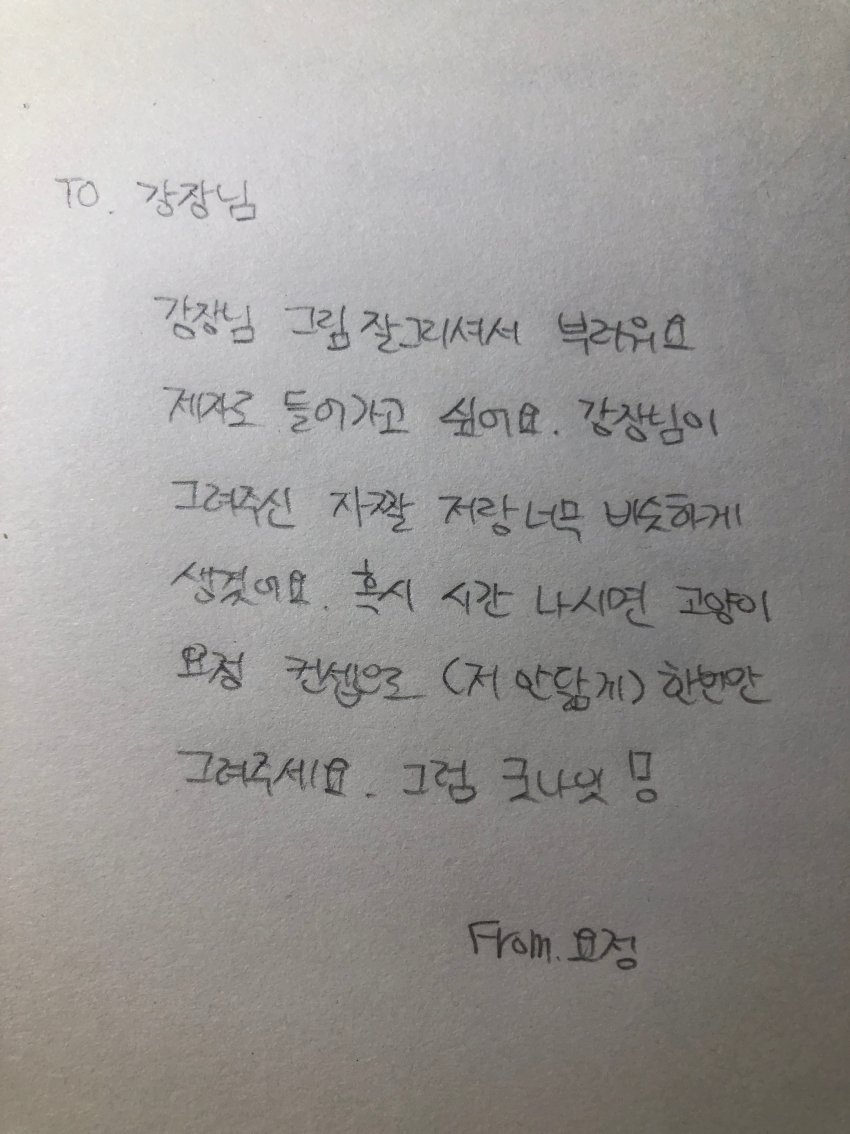 TO. 강장님
강장님 그림 잘그리셔서 부러워요
제자로 들어가고 싶어요. 강장님이
그려주신 자짤 저랑 너무 비슷하게
생겼어요. 혹시 시간 나시면 고양이
요정 컨셉으로 (저 안닮게) 한번만
그려주세요. 그럼 굿나잇 뿅
From. 요정